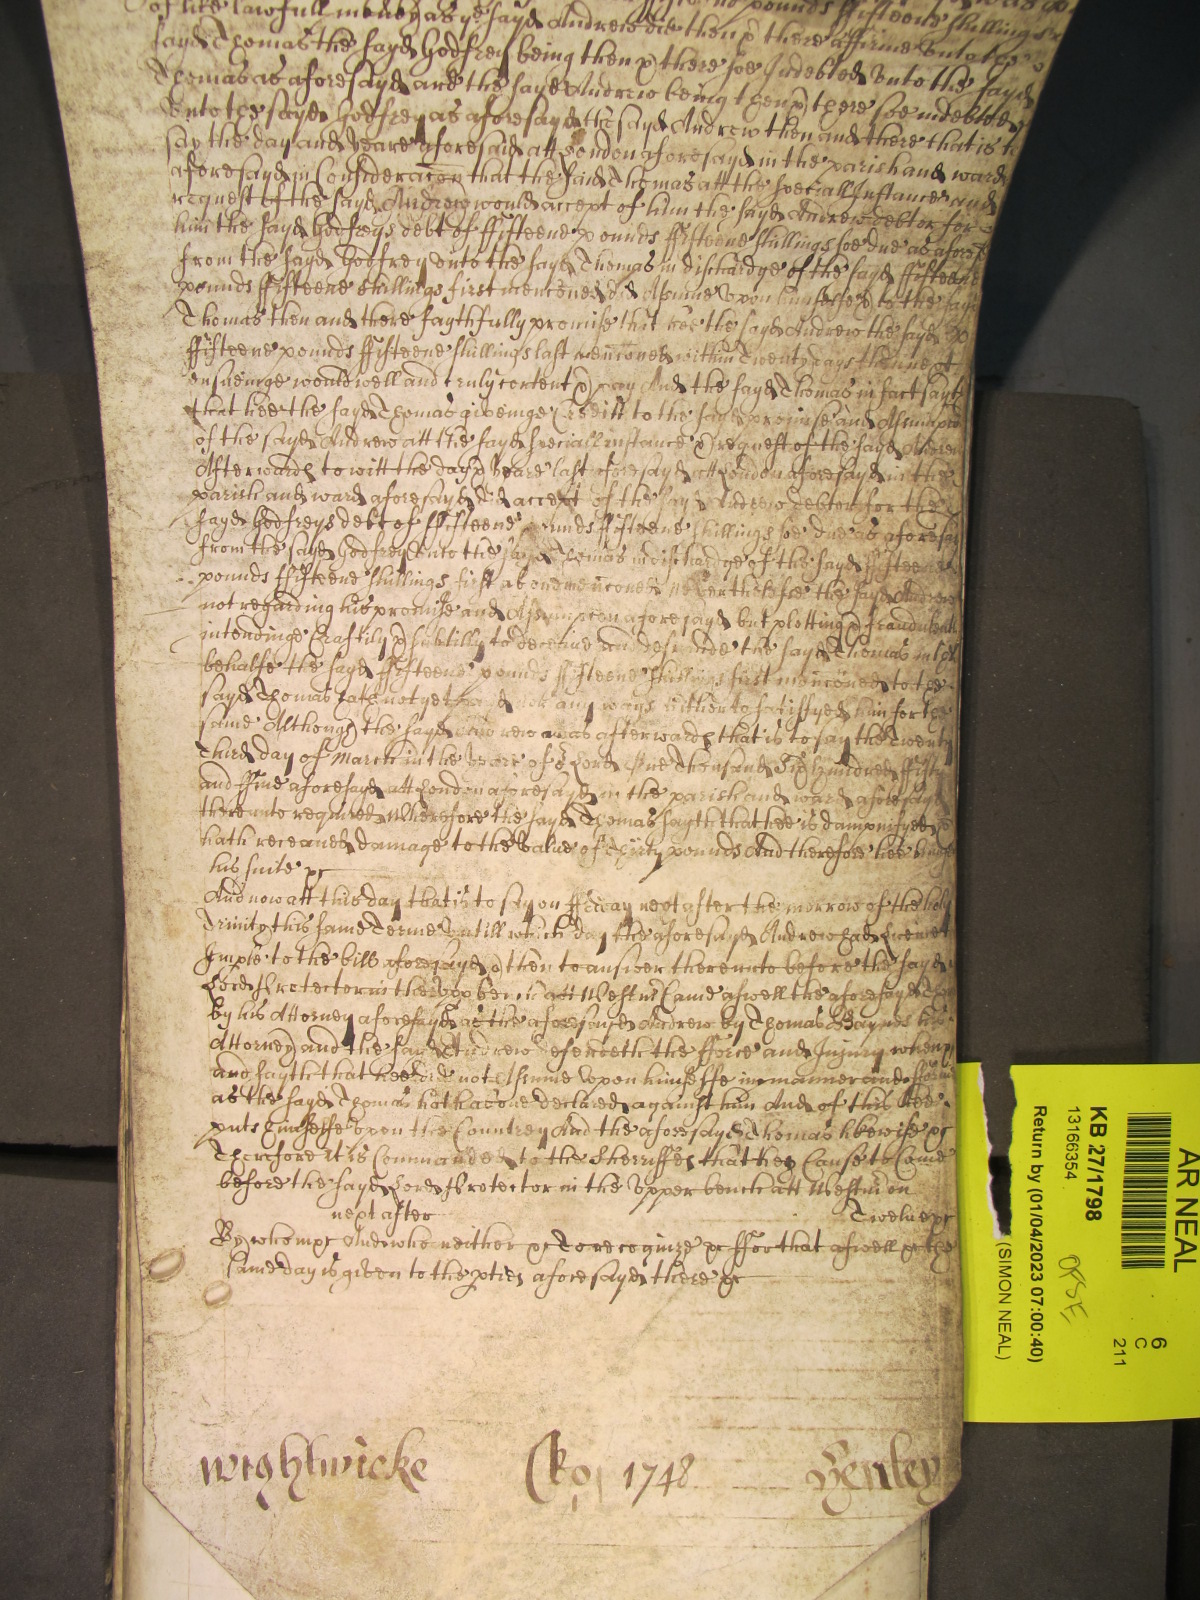 of like lawfull money as the sayd Andrew did then & there affirme unto the
sayd Thomas the sayd Godfrey being then & there soe Indebted unto the sayd
Thomas as aforesayd and the sayd Andrew being then & there soe indebted
unto the sayd Godfrey as aforesayd the sayd Andrew then and there that is to
say the day and yeare aforesaid att London aforesayd in the parish and ward
aforesayd in Consideracon that the said Thomas att the speciall Instance and
request of the sayd Andrew would accept of him the sayd Andrew debtor for
him the sayd Godfreys debt of ffifteene pounds ffifteene shillings soe due as afores
from the sayd Godfrey unto the sayd Thomas in dischardge of the sayd ffifteene
pounds ffifteene shillings first menconed did Assume upon himselfe & to the sayd
Thomas then and there faythfully promise that hee the sayd Andrew the sayd
ffifteene pounds ffifteene shillings last menconed within Twenty days then next
ensueinge would well and truly content & pay And the sayd Thomas in fact sayth
that hee the sayd Thomas giveinge Creditt to the sayd promise and Assumpcon
of the sayd Andrew att the sayd speciall instance & request of the sayd Andrew
Afterwards to witt the day & yeare last aforesayd att London aforesayd in the
parish and ward aforesayd did accept of the sayd Andrew debtor for the
sayd Godfreys debt of ffifteene pounds ffifteene shillings soe due as aforesay
from the sayd Godfrey unto the sayd Thomas in dischardge of the sayd ffifteene
pounds ffifteene shillings first above menconed neverthelesse the sayd Andrew
not regarding his promise and Assumpcon aforesayd but plotting & fraudulent
intendinge Craftily & subtilly to deceive and defraude the sayd Thomas in
behalfe the sayd ffifteene pounds ffifteene shillings first menconed to the
sayd Thomas hath not yet payd nor any ways hitherto satisfyed him for the
same Although the sayd Andrew was afterwards that is to say the Twenty
Third day of March in the yeare of Lord One Thousand Six hundred ffifty
and ffive aforesayd att London aforesayd in the parish and ward aforesayd
thereunto required Wherefore the sayd Thomas sayth that hee is dampnifyed &
hath receaved damage to the value of Thirty pounds And therefore hee bringe
his suite &c
And now att this day that is to say on ffriday next after the morrow of the holy
Trinity this same Terme untill which day the aforesayd Andrew had licence
Imple to the bill aforesayd & then to answer thereunto before the sayd
Lord Protector in the upp bench att Westm Came aswell the aforesayd Tho
by his Attorney aforesayd as the aforesayd Andrew by Thomas Baynes his
Attorney and the sayd Andrew defendeth the fforce and Injury when &
and sayth that hee did not Assume upon himselfe in manner and fforme
as the sayd Thomas hath above declared against him And of this hee
puts himselfe upon the Countrey And the aforesayd Thomas likewise &c
Therefore it is Commanded to the Sherriffes that they Cause to Come
before the sayd Lord Protector in the Upper bench att Westm on
next after Twelve &c
By whom &c And who neither &c To recognize &c ffor that aswell &c the
same day is given to the pties aforesayd there &c
Wightwicke Ro 1748 Henley
AR NEAL
6
C
211
KB 27/1798
13166354
Return by (01/04/2023 07:00:40)
(SIMON NEAL)